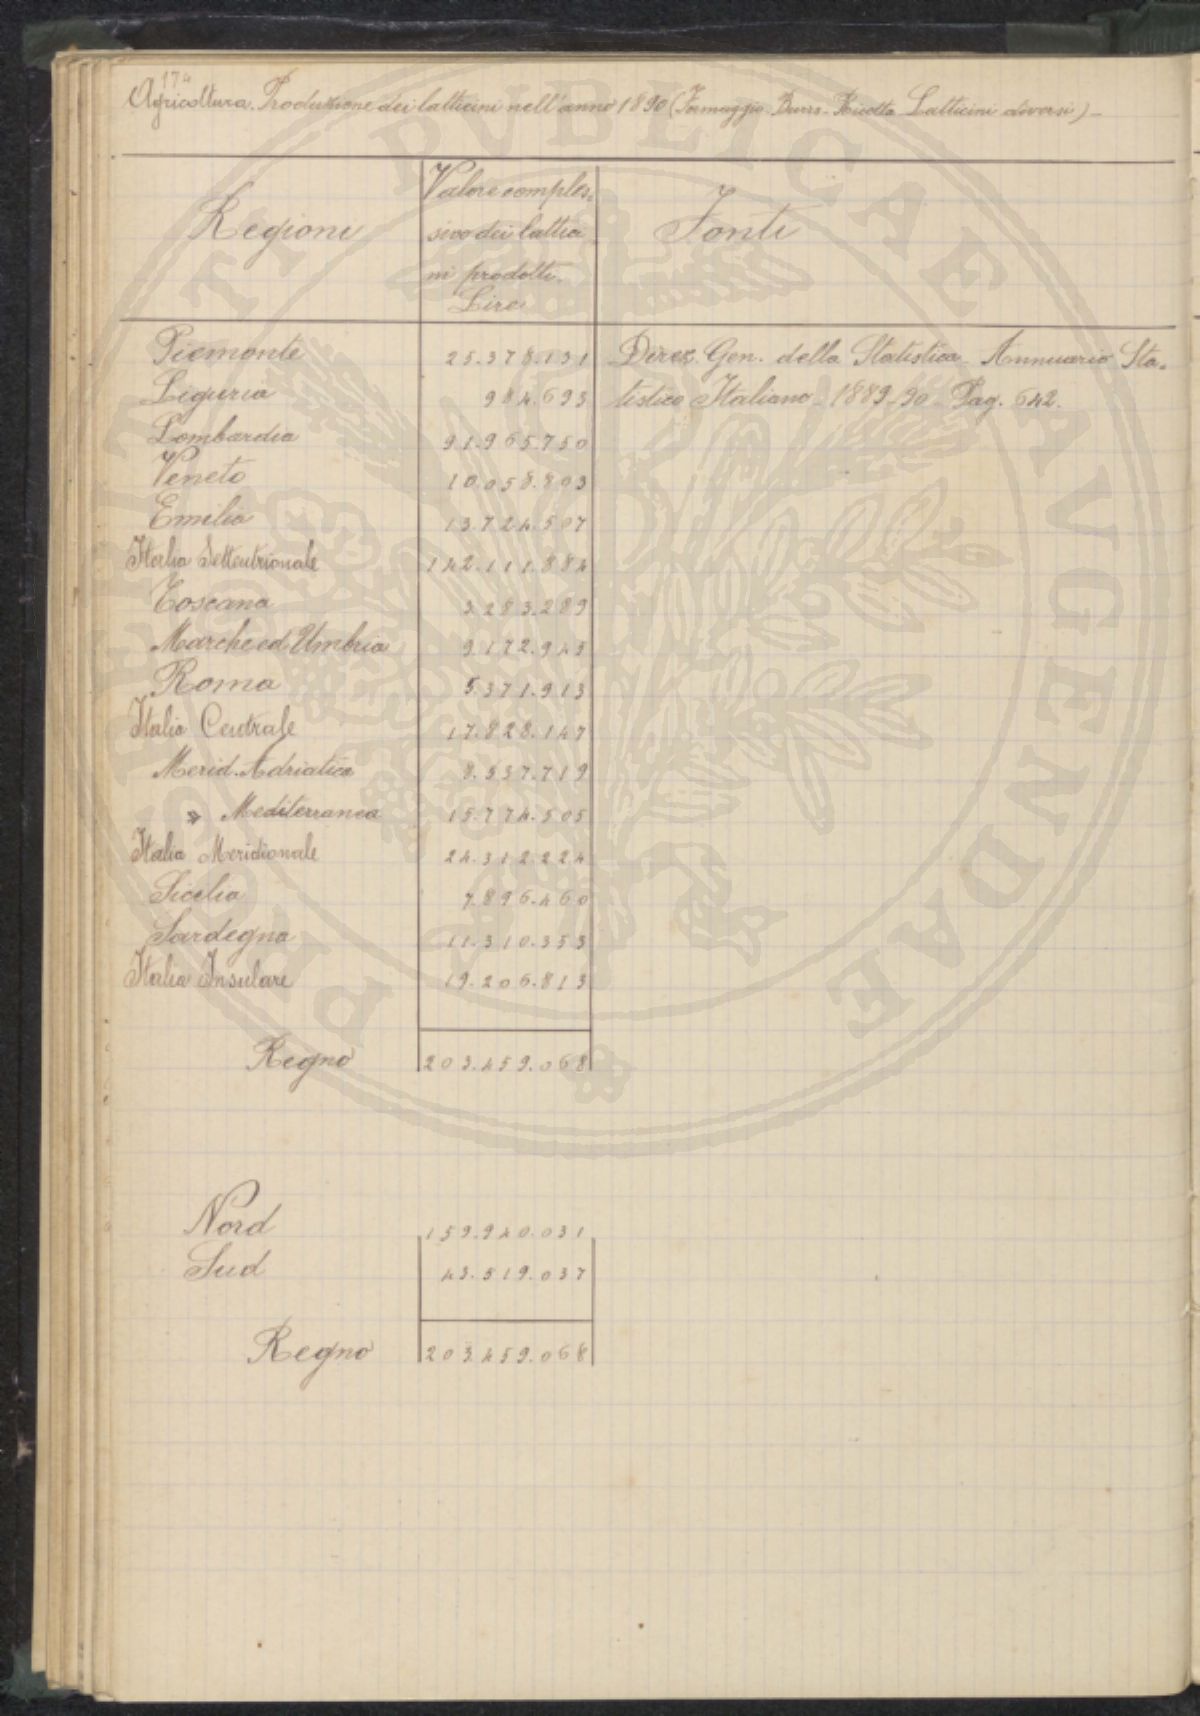 174
Agricoltura. Produzione dei latticini nell'anno 1890 (Formaggio - Burro - Ricotta - Latticini diversi) -
Regioni
Valore comples-
sivo dei lattici
ni prodotti.
Lire
Fonti
Piemonte 25.378.131 Direz. Gen. della Statistica - Annuario Sta-
Liguria 984.693 tistico Italiano - 1889-90 - Pag. 642.
Lombardia 91.965.750
Veneto 10.058.803
Emilia 13.724.507
Italia Settentrionale 142.111.884
Toscana 3.283.289
Marche ed Umbria 9.172.945
Roma 5.371.913
Italia Centrale 17.828.147
Merid. Adriatica 8.537.719
» Mediterranea 15.774.505
Italia Meridionale 24.312.224
Sicilia 7.896.460
Sardegna 11.310.353
Italia Insulare 19.206.813
Regno 203.459.068
Nord 159.940.031
Sud 43.519.037
Regno 203.459.068
PUBLICAE AVGENDAE